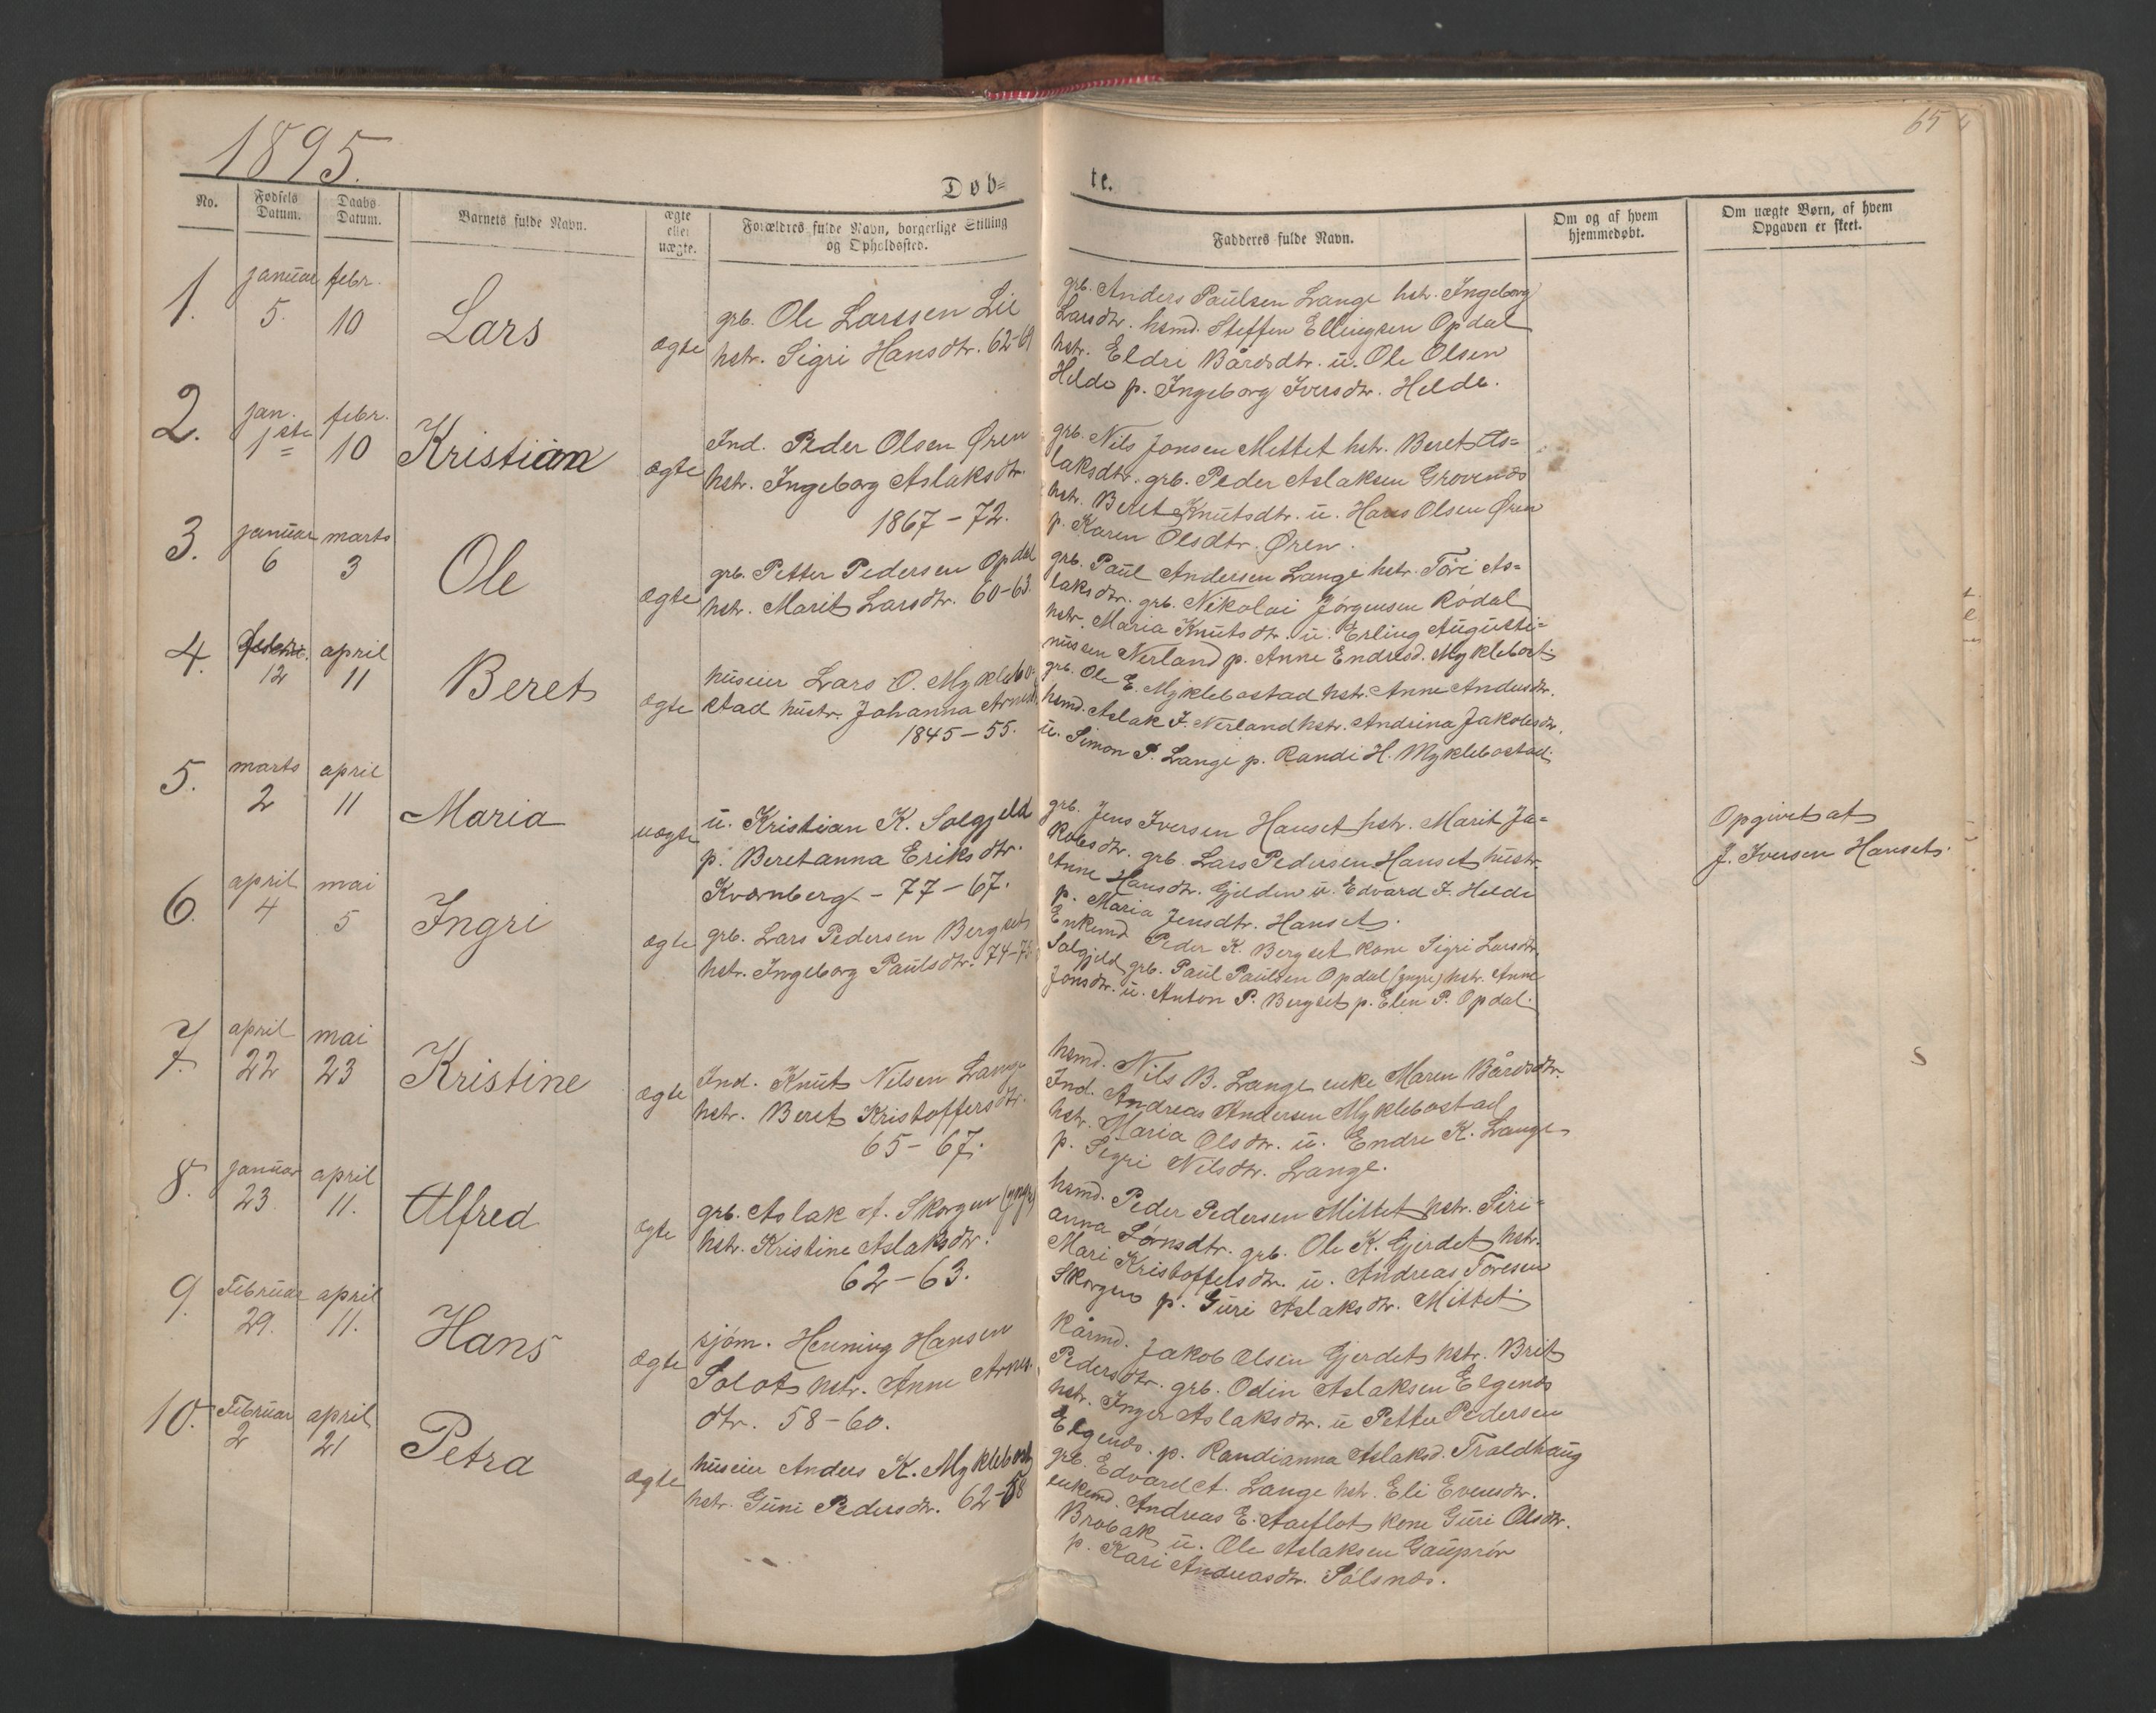 1895.
65
Døb=
te.
No.
Fødsels Datum.
Daabs Datum.
Barnets fulde Navn.
ægte eller uægte.
Forældres fulde Navn, borgerlige Stilling og Opholdssted.
Fadderes fulde Navn.
Om og af hvem hjemmedøbt.
Om uægte Børn, af hvem Opgaven er skeet.
1.
januar 5.
febr. 10
Lars
ægte
grb. Ole Larssen Lie
hstr. Sigri Hansdtr. 62-69
grb. Anders Paulsen Lange hstr. Ingeborg
Larsdtr. hsmd. Steffen Ellingsen Opdal
hstr. Eldri Bårdsdtr. u. Ole Olsen
Helde p. Ingeborg Iversdtr. Helde.
2.
jan. 1ste
febr. 10
Kristian
ægte
Ind. Peder Olsen Øren
hstr. Ingeborg Aslaksdtr.
1867-72.
grb. Nils Jonsen Mettet hstr. Beret As=
laksdtr. grb. Peder Aslaksen Grovends
hstr. Beret Knutsdtr. u. Hans Olsen Øren
p. Karen Olsdtr. Øren.
3.
januar 6
marts 3
Ole
ægte
grb. Petter Pedersen Opdal
hstr. Marit Larsdtr. 60-63.
grb. Paul Andersen Lange hstr. Töri As=
laksdtr. grb. Nikolai Jørgensen Rødal
hstr. Maria Knutsdtr. u. Erling Augusti=
nussen Nerland p. Anne Endresd. Myklebost.
4.
12
april 11
Beret
ægte
huseier Lars O. Myklebo-
stad hustr. Johanna Arnesd.
1845-55.
grb. Ole E. Myklebostad hstr. Anne Andersdtr.
hsmd. Aslak J. Nerland hstr. Andrina Jakobsdtr.
u. Simon P. Lange p. Randi H. Myklebostad.
5.
marts 2
april 11
Maria
uægte
u. Kristian K. Solgjeld
p. Beretanna Eriksdtr.
Kvernberg - 77-67.
grb. Jens Iversen Hauset hstr. Marit Ja=
kobsdtr. grb. Lars Pedersen Hauset hustr.
Anne Hansdtr. Gjelden u. Edvard I. Helde
p. Maria Jensdtr. Hauset.
Opgivet at
J. Iversen Hauset.
6.
april 4
mai 5
Ingri
ægte
grb. Lars Pedersen Bergset
hstr. Ingeborg Paulsdtr. 74-75
Enkemd. Peder K. Bergset kone Sigri Larsdtr.
Solgjeld, grb. Paul Paulsen Opdal (yngre) hstr. Anne
Jonsdtr. u. Anton P. Bergset p. Elen P. Opdal.
7.
april 22
mai 23
Kristine
ægte
Ind. Knut Nilsen Lange
hstr. Beret Kristoffersdtr.
65-67.
hsmd. Nils B. Lange enke Maren Bårdsdtr.
Ind. Andreas Andersen Myklebostad
hstr. Maria Olsdtr. u. Endre K. Lange
p. Sigri Nilsdtr. Lange.
8.
januar 23
april 11.
Alfred
ægte
grb. Aslak A. Skorgen (yngr)
hstr. Kristine Aslaksdtr.
62-63.
hsmd. Peder Pedersen Mittet hstr. Siri=
anna Sörensdtr. grb. Ole K. Gjerdet hstr.
Mari Kristoffersdtr. u. Andreas Toresen
Skorgen p. Guri Aslaksdtr. Mittet.
9.
Februar 29.
april 11.
Hans
ægte
sjøm. Henning Hansen
Solot hstr. Anne Arnes-
dtr. 58-60.
Kårmd. Jakob Olsen Gjerdet hstr. Brit
Pedersdtr. grb. Odin Aslaksen Elgenes
hstr. Inger Aslaksdtr. u Petter Pedersen
Elgenes. p. Randianna Aslaksd. Troldhaug
10.
Februar 2
april 21
Petra
ægte
huseier Anders K. Myklebost
hstr. Guri Pedersdtr. 62-58
grb. Edvard A. Lange hstr. Eli Evensdtr.
enkemd. Andreas E. Aarflot kone Guri Olsdtr.
Brobak u. Ole Aslaksen Gauprör
p. Kari Andreasdtr. Sölsnes.